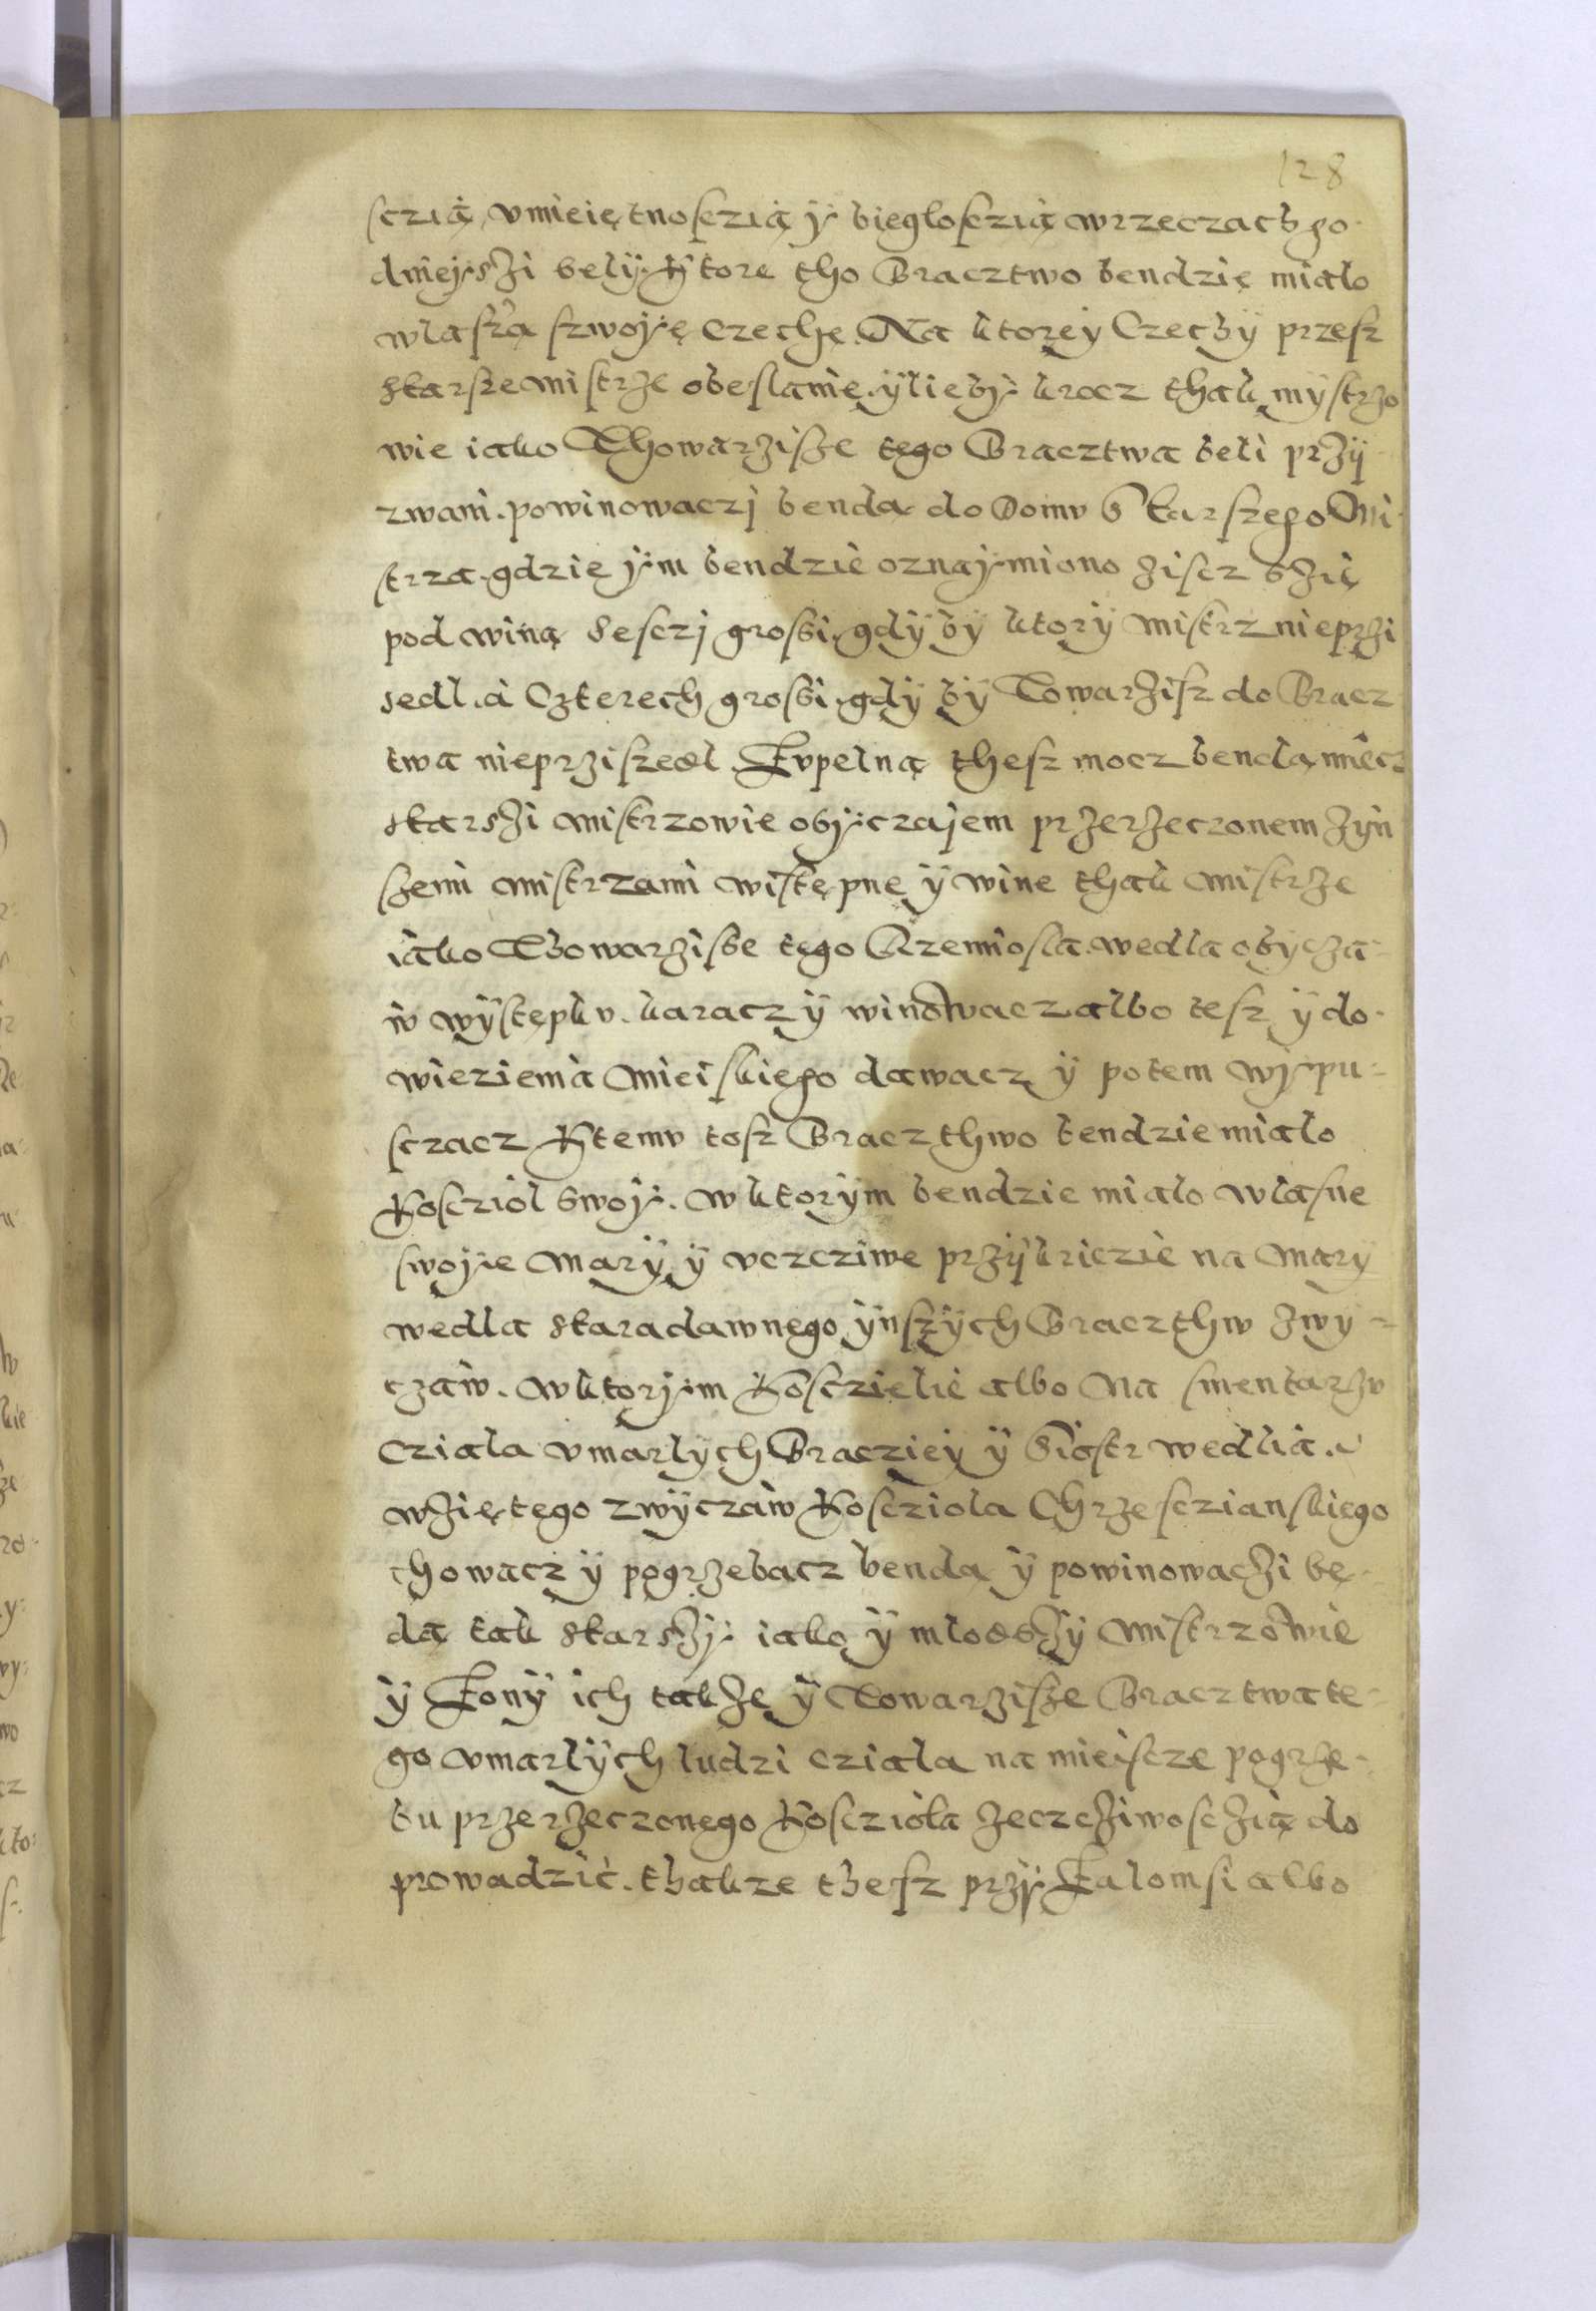 128
sczią, vmieiętnosczią ÿ biegłosczią wrzeczach go-
dnieÿsżi belÿ. Ktore tho Bracztwo bendzie miało
własża szwoÿę Czechę. Na ktoreÿ Czechÿ przesz
starsze mistrże obesłanie. ÿliebÿ krocz thak mÿstrżo
wie iako Thowarżisże tego Bracztwa beli prżÿ
zwani. powinowaczj benda do Domv Starszego Mi-
strza, gdzie ÿm bendzie oznaÿmiono żiscz sżię
pod winą sesczj grossi. gdÿ bÿ ktorÿ mistrz nieprżi
sedl. a Czterech grossi. gdÿ bÿ Towarżisz do Bracz-
twa nieprżiszedl. Zvpelną thesz mocz bendą miecz
starsżi mistrzowie obÿczajem prżerżeczonem żÿn
szemi mistrzami wistępne ÿ wine thak mistrże
iako Thowarżisse tego Rzemiosla. wedla obyczża-
iv wÿstępkv. karacz ÿ winowacz albo tesz ÿ do-
wieziemia mieiskiego dawacz ÿ potem wÿpu-
sczacz Ktemv tosz Braczthwo bendzie miało
Kosczioł swoÿ. w ktorÿm bendzie miało własne
swoÿe marÿ ÿ vczcziwe prżÿkriczie na marÿ
wedla staradawnego ÿnszÿch Braczthw żwÿ-
czaiv. w ktorÿm Kosczielie albo na smentarżv
Cziała vmarłÿch Bracziej ÿ Siostr wedlia.
wżiętego zwÿczaiv Kosczioła Chrżesczianskiego
chowacz ÿ pogrżebacz benda ÿ powinowaczżi bę-
dą tak starsżÿ iako ÿ młodsżÿ mistrzowie
ÿ Zonÿ ich także ÿ Towarżisże Bracztwa te-
go vmarłÿch ludzi cziała na mieiscze pogrże-
bu prżerżeczonego Kosczioła żeczcżiwosczżią do
prowadzić. thakze thesz prżÿ Zalomsi albo